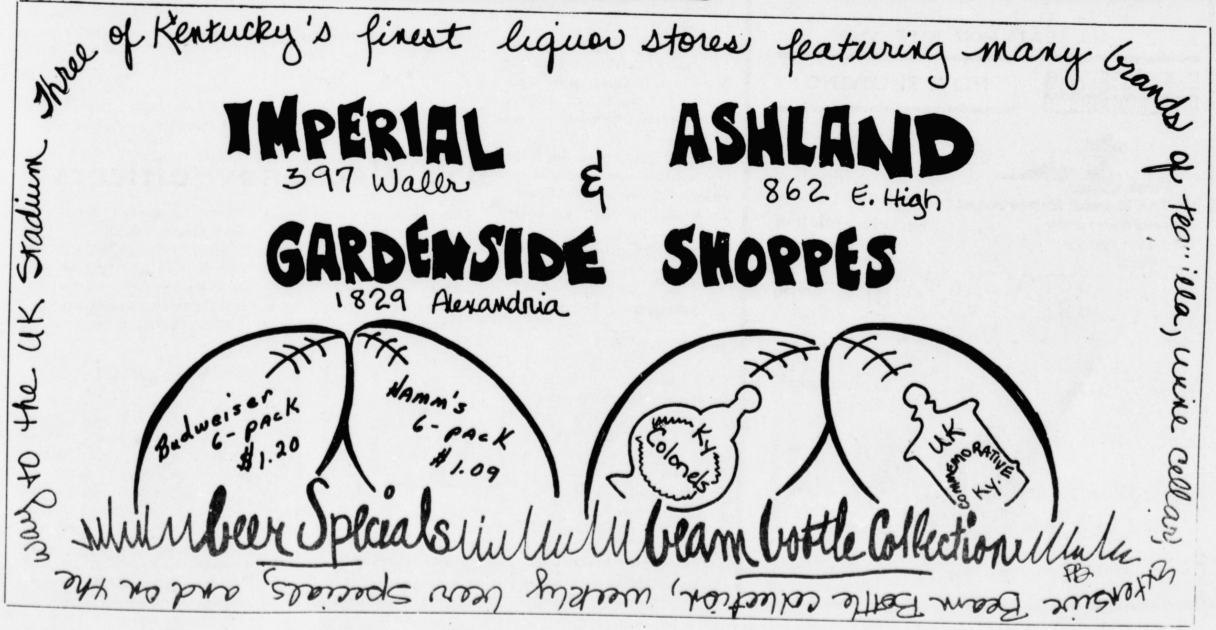 Three of Kentucky's finest liquor stores featuring many brands of teq·illa, wine cellar, extensive Beam Bottle collection, weekly beer specials, and on the way to the UK Stadium
IMPERIAL
397 Waller
&
ASHLAND
862 E. High
GARDENSIDE SHOPPES
1829 Alexandria
Budweiser
6-pack
$1.20
HAMM'S
6-pack
$1.09
Ky
Colonels
UK
COMMEMORATIVE
KY.
beer Specials
beam bottle Collection